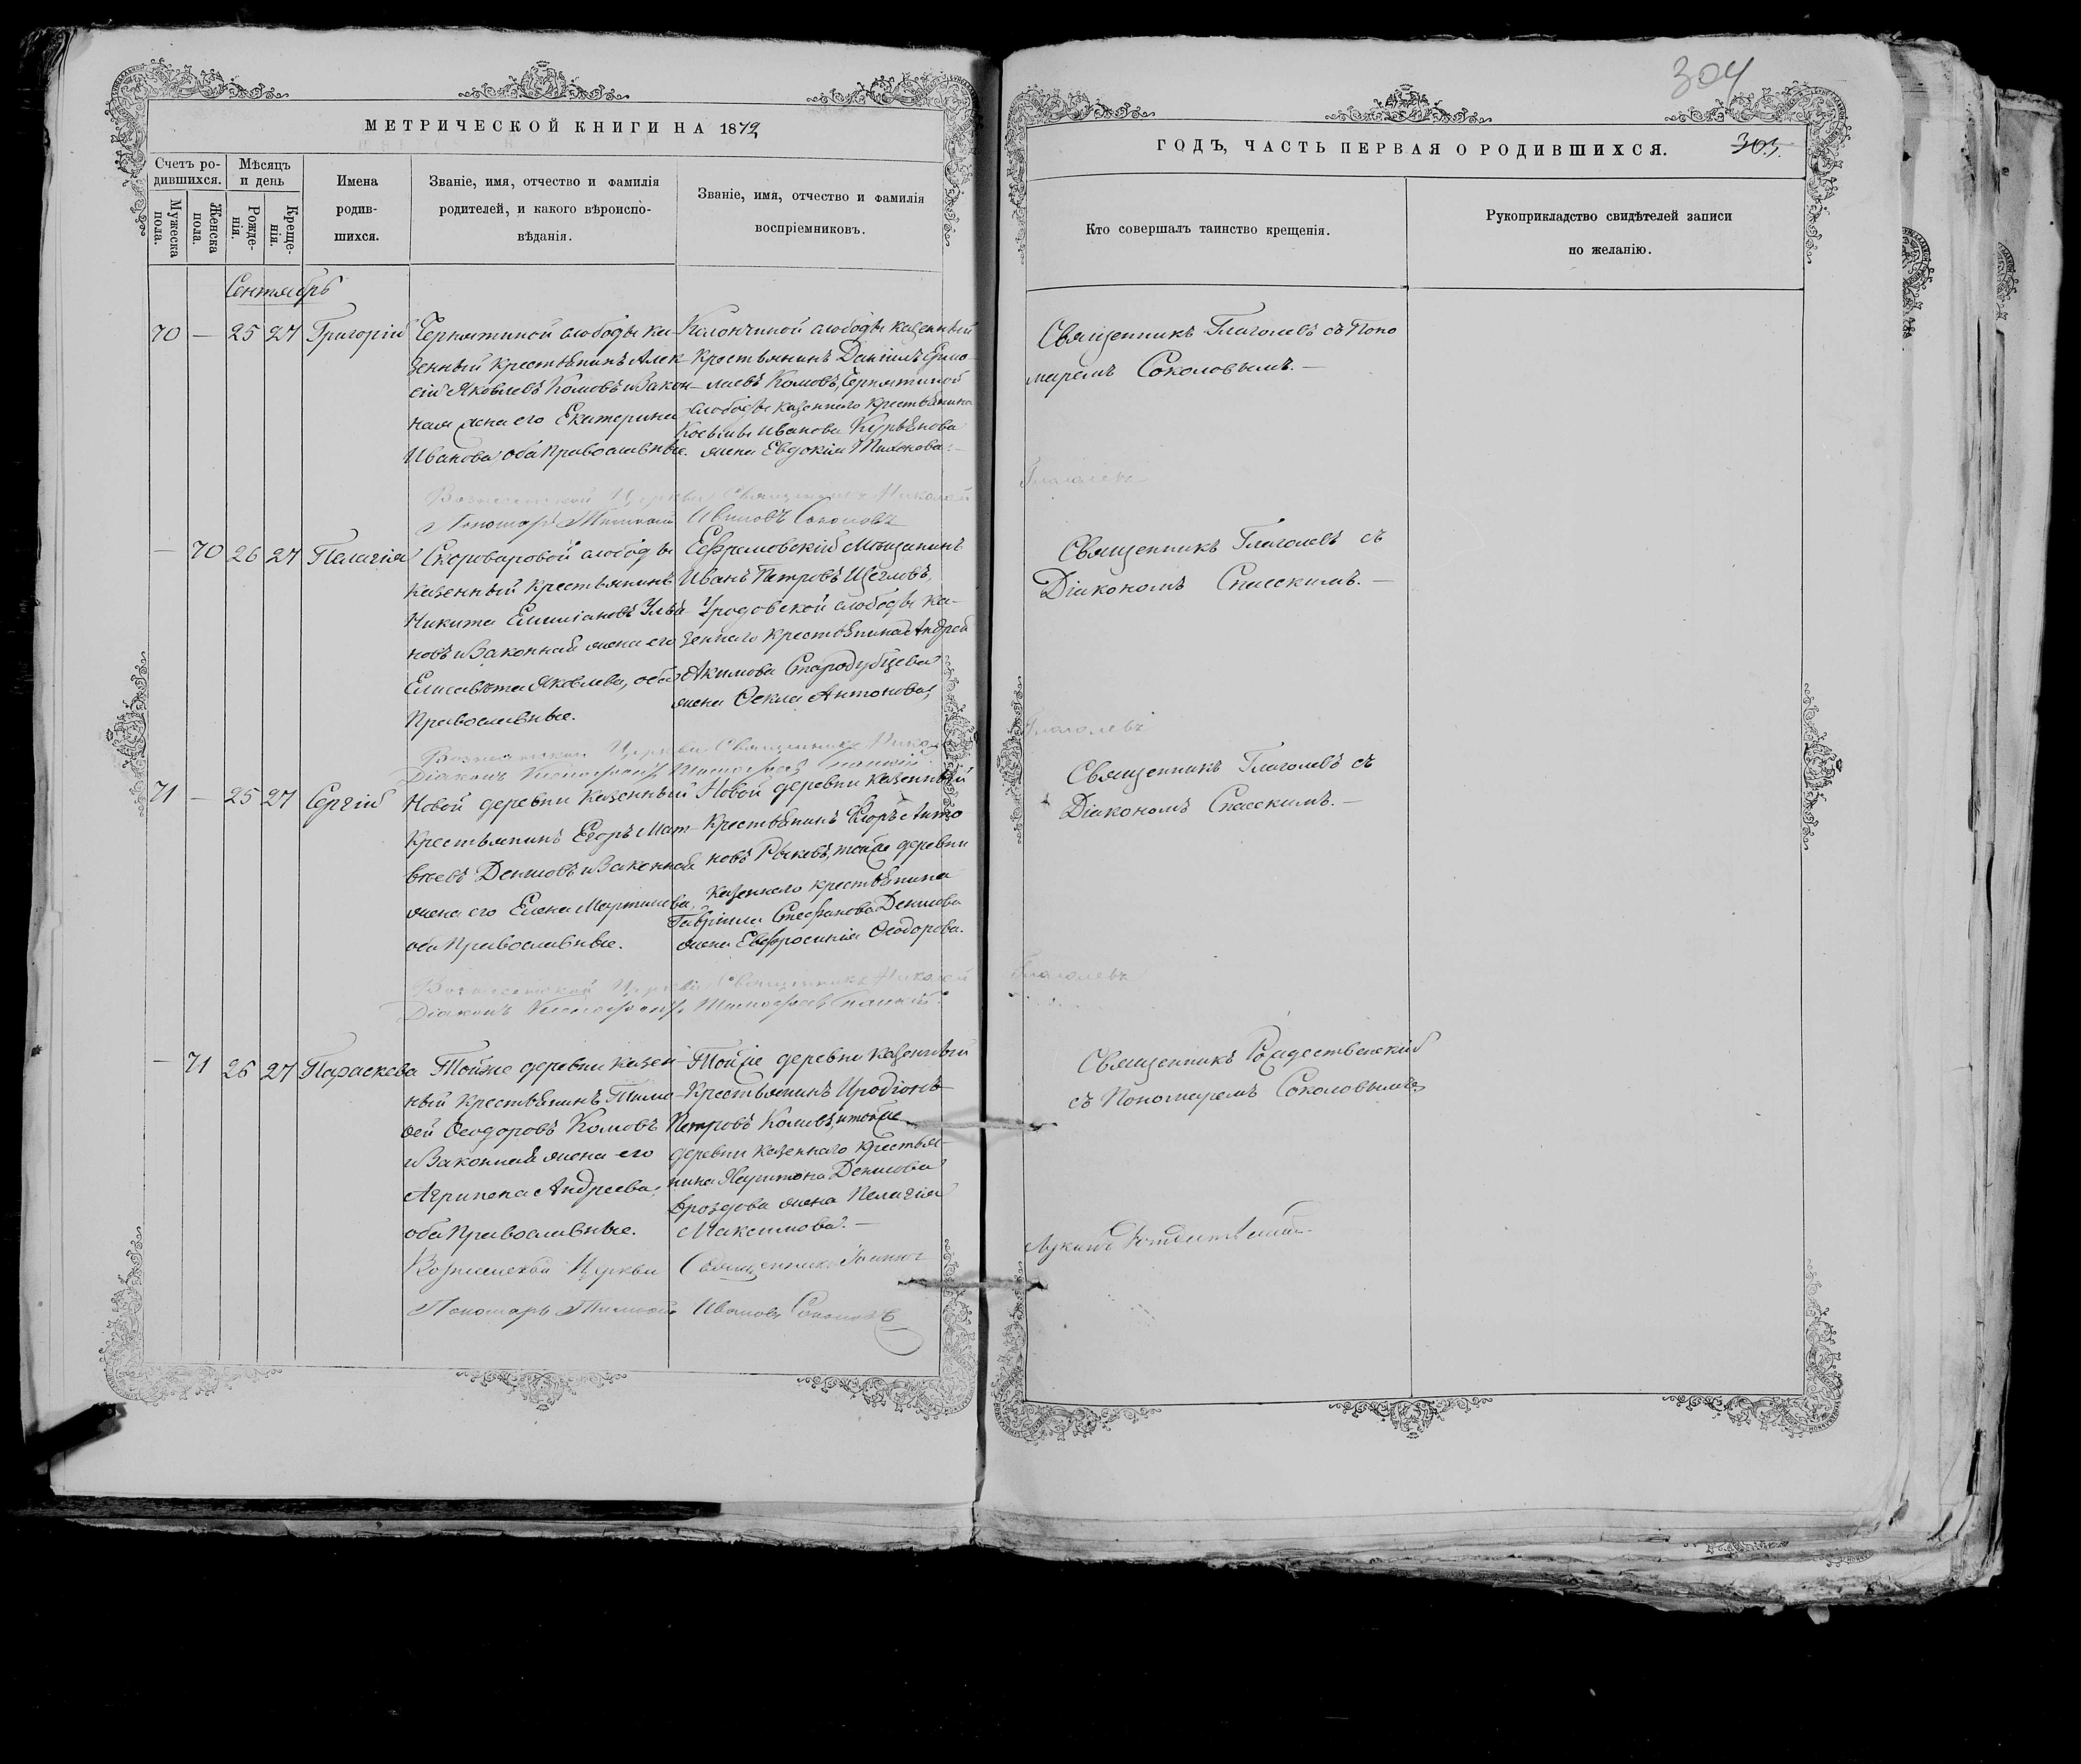 МЕТРИЧЕСКОЙ КНИГИ НА 1872
Счетъ ро-
дившихся.
Мужеска
пола.
Женска
пола.
Мѣсяцъ
и день
Рожде-
нія.
Креще-
нія.
Имена
родив-
шихся.
Званіе, имя, отчество и фамилія
родителей, и какого вѣроиспо-
вѣданія.
Званіе, имя, отчество и фамилія
воспріемниковъ.
Сентябрь
70 — 25 27 Григорій
Чернятиной слободы ка-
зенный крестьянинъ Алек-
сій Яковлевъ Комовъ и закон-
ная жена его Екатерина
Иванова, оба Православные.
Колончиной слободы казенный
крестьянинъ Даніилъ Ермо-
лаевъ Комовъ, Чернятиной
слободы казеннаго крестьянина
Косьмы Иванова Курьянова
жена Евдокія Тихонова.
Вознесенской Церкви Священникъ Николай
Пономарь Тимофей Ивановъ Соколовъ
— 70 26 27 Пелагія
Скороваровой слободы
казенный крестьянинъ
Никита Емиліановъ Улья-
новъ и законная жена его
Елисавета Яковлева, оба
Православные.
Ефремовскій мѣщанинъ
Иванъ Петровъ Щегловъ,
Уродовской слободы ка-
зеннаго крестьянина Андрея
Акимова Стародубцева
жена Ѳекла Антонова,
Вознесенской Церкви Священникъ Никол
Діаконъ Ксенофонтъ Тимофеевъ Спасский
71 — 25 27 Сергій
Новой деревни казенный
крестьянинъ Егоръ Мат-
вѣевъ Денисовъ и законная
жена его Елена Мартинова,
оба Православные.
Новой деревни казенный
крестьянинъ Егоръ Анто-
новъ Рыковъ, той же деревни
казеннаго крестьянина
Гавріила Стефанова Денисова
жена Евфросинія Ѳеодорова.
Вознесенской Церкви Священникъ Николай
Діаконъ Ксенофонтъ Тимофеевъ Спаский
— 71 26 27 Параскева
Той же деревни казен-
ный крестьянинъ Тимо-
ѳей Ѳеодоровъ Комовъ
и законная жена его
Агрипена Андреева,
оба Православные.
Той же деревни казенный
крестьянинъ Иродіонъ
Петровъ Комовъ, и той же
деревни казеннаго крестья-
нина Харитона Денисова
Дроздова жена Пелагія
Максимова. —
Вознесенской Церкви Священникъ Іоаннъ
Пономарь Тимофей Ивановъ Соколовъ
304
ГОДЪ, ЧАСТЬ ПЕРВАЯ О РОДИВШИХСЯ.
305.
Кто совершалъ таинство крещенія.
Рукоприкладство свидѣтелей записи
по желанію.
Священникъ Глаголевъ съ Поно
маремъ Соколовымъ. —
Глаголевъ
Священникъ Глаголевъ съ
Діакономъ Спасскимъ. —
Глаголевъ
Священникъ Глаголевъ съ
Діакономъ Спасскимъ. —
Глаголевъ
Священникъ Рождественскій
съ Пономаремъ Соколовымъ
Лукинъ Рождественскій